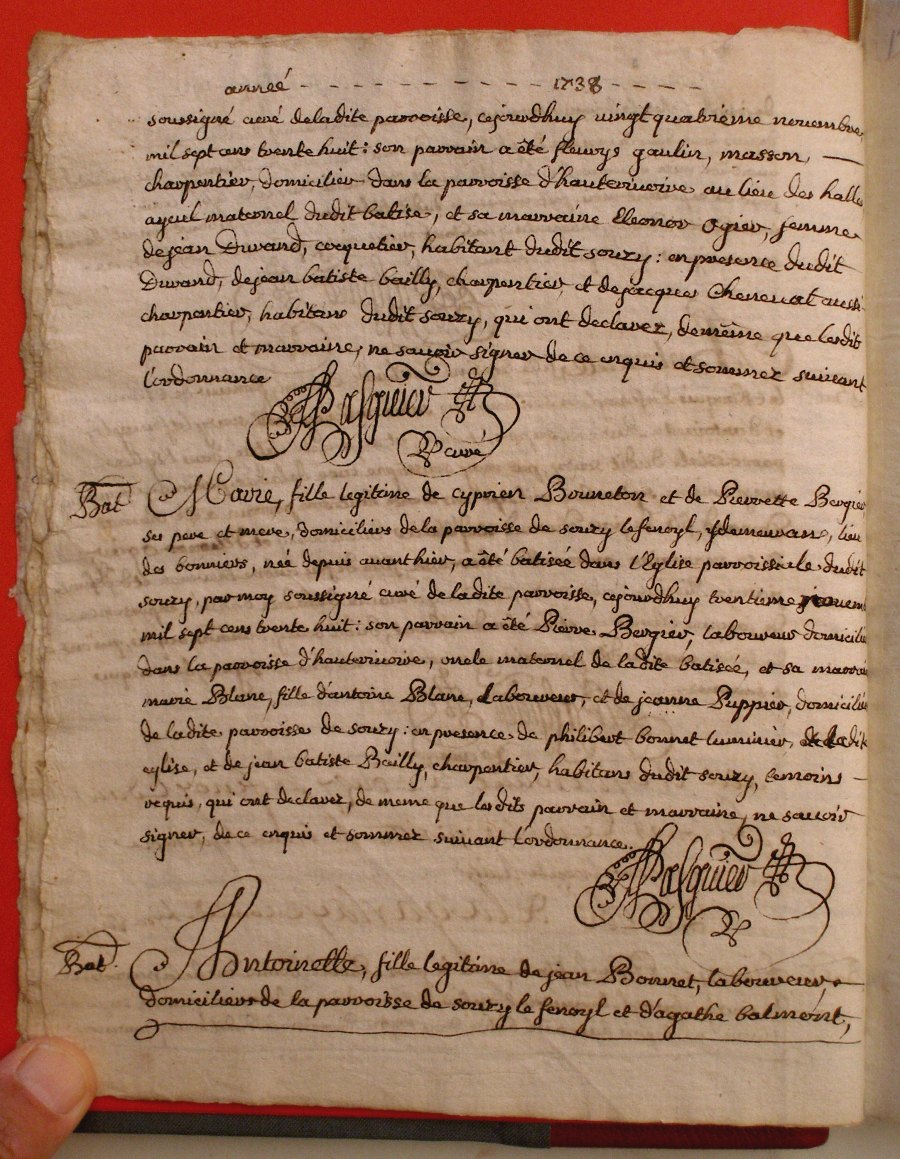 anneé 1738
soussigné curé deladite parroisse, cejourdhuy vingt quatriême novembre
mil sept cens trente huit : son parrain a été fleurys gaulin, masson
charpentier, domicilier dans la parroisse d'hauterivoire au lieu des halles
ayeul maternel dudit batisé, et sa marraine Eleonor Ogier, femme
de jean Durand, coquetier, habitant dudit souzy : en presence dudit
Durand, de jean batiste bailly, charpentier, et de jacque Chenevat aussi
charpentier, habitans dudit souzy, qui ont declarez, demême que lesdit
parrain et marraine, ne savoir signer de ce enquis et sommez suivant
l'ordonnance
Pasquier
curé
Bat Marie, fille legitime de cyprien Bonneton et de Pierrette Bergier
ses pere et mere, domiciliers de la parroisse de souzy lefenoyl, y demeurans, lieu
des bonniers, née depuis avanthier, a été batisée dans l'Eglise parroissiale dudit
souzy, par moy soussigné curé de ladite parroisse, cejourdhuy trentieme
mil sept cens trente huit : son parrain a été Pierre Bergier, laboureur domicilié
dans la parroisse d'hauterivoire, oncle maternel de ladite batisée, et sa marraine
marie Blanc, fille d'antoine Blanc, laboureur, et de jeanne Puppier, domiciliés
de ladite parroisse de souzy : en presence de philibert bonnet luminier, de ladite
eglise, et de jean batiste Bailly, charpentier, habitans dudit souzy, temoins
requis, qui ont declarez, de meme que lesdits parrain et marraine, ne savoir
signer, de ce enquis et sommez suivant l'ordonnance.
Pasquier
Bat. Antoinette, fille legitime de jean Bonnet, laboureur,
domiciliers de la parroisse de souzy le fenoyl et d'agathe balmont,